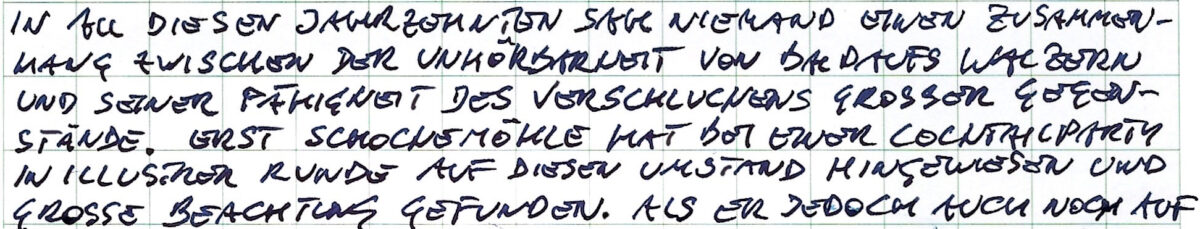 IN ALL DIESEN JAHRZEHNTEN SAH NIEMAND EINEN ZUSAMMEN-
HANG ZWISCHEN DER UNHÖRBARKEIT VON BALDAUFS WALZERN
UND SEINER FÄHIGKEIT DES VERSCHLUCKENS GROSSER GEGEN-
STÄNDE. ERST SCHOCKEMÖHLE HAT BEI EINER COCKTAILPARTY
IN ILLUSTRER RUNDE AUF DIESEN UMSTAND HINGEWIESEN UND
GROSSE BEACHTUNG GEFUNDEN. ALS ER JEDOCH AUCH NOCH AUF